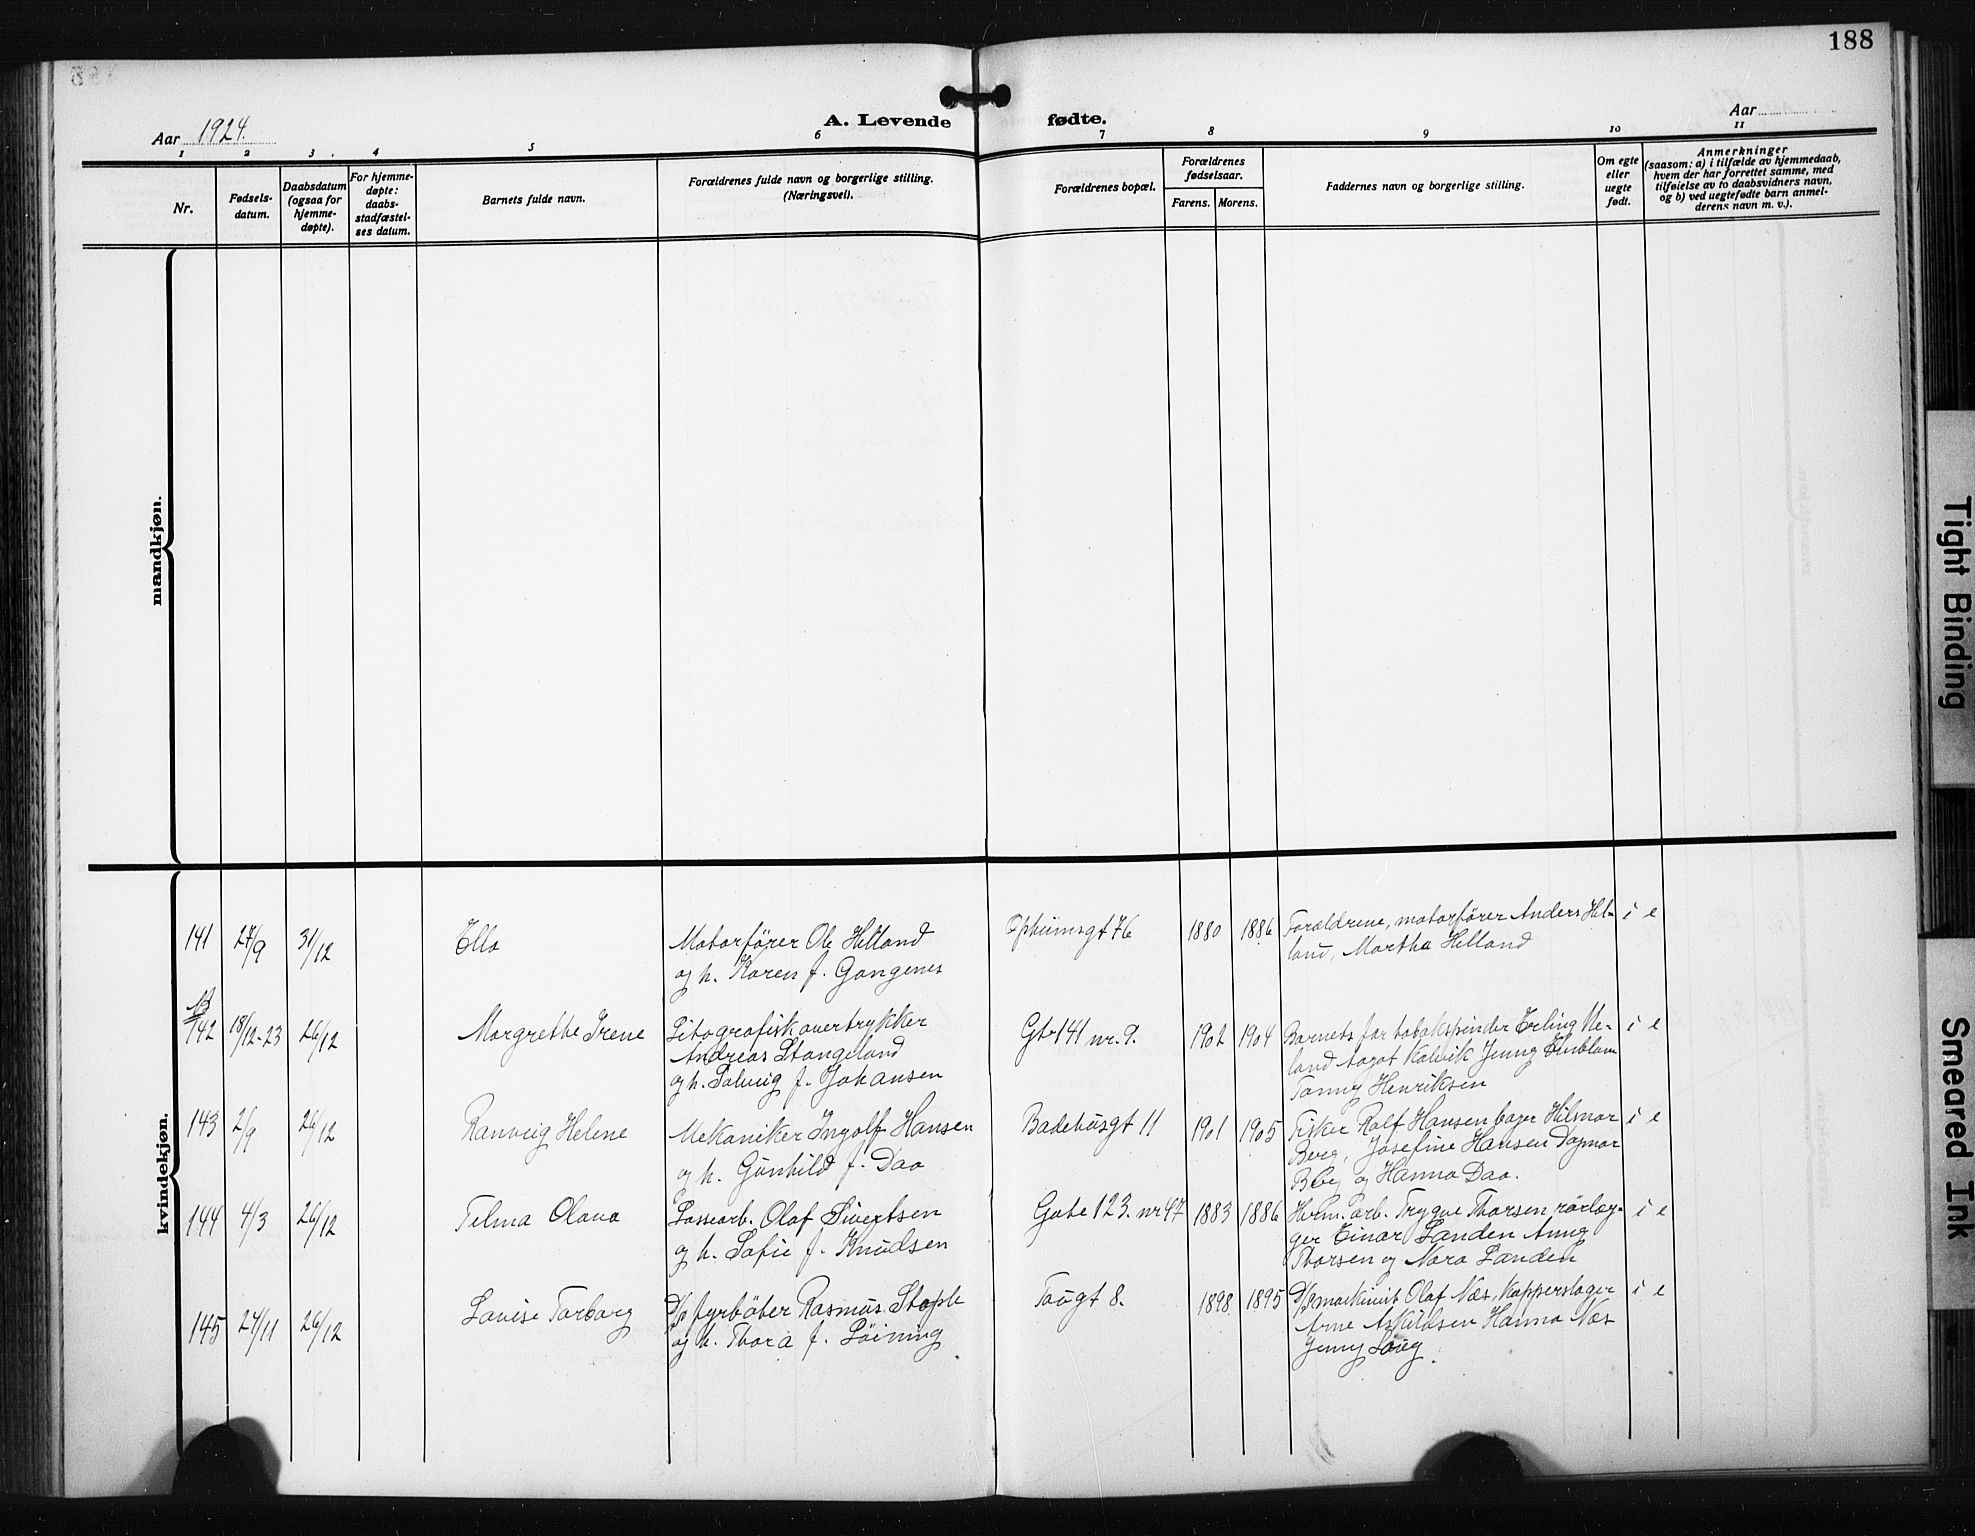 188
Aar 1924.
A. Levende fødte.
Aar
1 2 3 4 5 6 7 8 9 10 11
Nr.
Fødsels-
datum.
Daabsdatum
(ogsaa for
hjemme-
døpte).
For hjemme-
døpte:
daabs-
stadfæstel-
ses datum.
Barnets fulde navn.
Forældrenes fulde navn og borgerlige stilling.
(Næringsvei).
Forældrenes bopæl.
Forældrenes
fødselsaar.
Farens. Morens.
Faddernes navn og borgerlige stilling.
Om egte
eller
uegte
født.
Anmerkninger
(saasom: a) i tilfælde av hjemmedaab,
hvem der har forrettet samme, med
tilføielse av to daabsvidners navn,
og b) ved uegtefødte barn anmel-
derens navn m. v.).
mandkjøn.
kvindekjøn.
141 27/9 31/12 Ella
Motorfører Ole Helland
og h. Karen f. Gangenes
1880 1886
Forældrene, motorfører Anders Hel-
land, Martha Helland
i e
142 18/12-23 26/12 Margrethe Irene
Litografisk overtrykker
Andreas Stangeland
og h. Solveig f. Johansen
Gt 141 nr. 9.
1902 1904
Barnets far tobakspinder Erling
land Aagot Kalvik Jenny
Fanny Henriksen
i e
143 2/9 26/12 Ranveig Helene
Mekaniker Ingolf Hansen
og h. Gunhild f. Daa
Badehusgt 11
1901 1905
Fisker Rolf Hansen bager Hilmar
Berg, Josefine Hansen Dagmar
Berg og Hanna Daa.
i e
144 4/3 26/12 Telma Olava
Lossearb. Olaf Sivertsen
og h. Sofie f. Knudsen
Gate 123. nr 47
1883 1886
Herm. arb. Trygve Thorsen rørlæg-
ger Einar Landen Anny
Thorsen og Nora Landen
i e
145 24/11 26/12 Lovise Torborg
D/s fyrbøter Rasmus Stople
og h. Thora f. Løining
Taugt 8.
1898 1895
D/s maskinist Olaf Næs, Kapperslager
Arne Askildsen Hanna Næs
Jenny
i e
Tight Binding
Smeared Ink